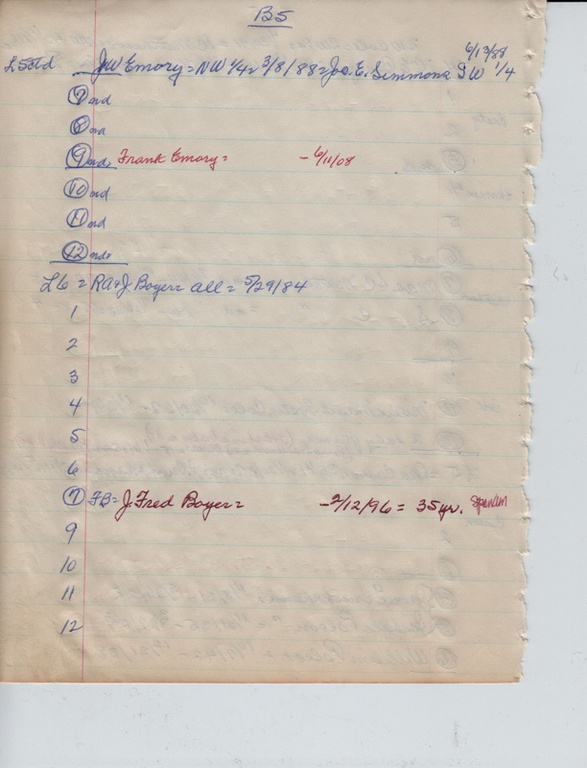 B5
6/13/88
L5 std JW Emory = NW 1/4 = 3/8/88 = Joe. E. Simmons SW 1/4
7 nd
8 nd
9 nd. Frank Emory = - 6/11/08
10 nd
11 nd
12 nd.
L6 = RA & J Boyer = all = 5/29/84
1
2
3
4
5
6
7 FB = J. Fred Boyer = - 2/12/96 = 35 yr. SpanAm
9
10
11
12